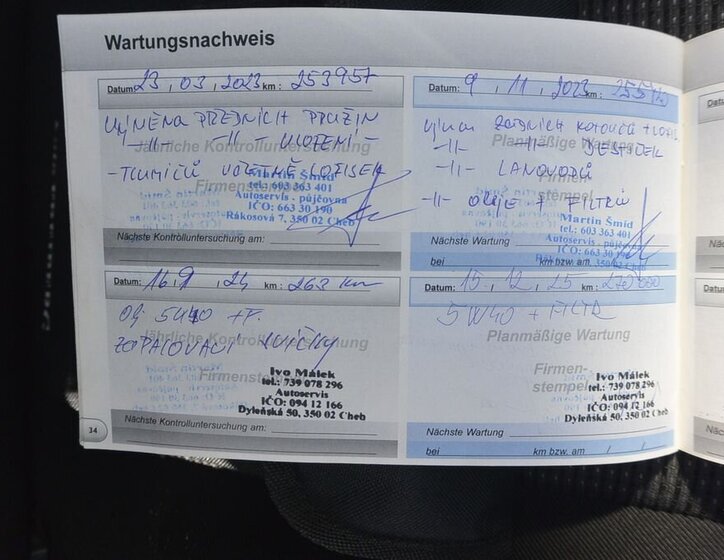 Wartungsnachweis
Datum: 23 , 03 , 2023 km : 253957
VÝMĚNA PŘEDNÍCH PRUŽIN
-11- -11- ULOŽENÍ -
Jährliche Kontrolluntersuchung
- TLUMIČŮ VČETNĚ LOŽISEK
Firmenstempel
Martin Šmíd
tel.: 603 363 401
Autoservis - půjčovna
IČO: 663 30 190
Rákosová 7, 350 02 Cheb
Nächste Kontrolluntersuchung am:
Datum: 9 , 11 , 2023 km :
zadních kotoučů +
Planmäßige Wartung
-11- -11- DESTIČEK
-11- LANOVODŮ
Firmen-
stempel
-11- OLEJE + FILTRŮ
Martin Šmíd
tel.: 603 363 401
Autoservis - půjčovna
IČO: 663 30 190
350 02 Cheb
Nächste Wartung
bei km bzw. am
Datum: 16. 9 , 24 km : 263 km
Olj 5W40 + F.
Jährliche Kontrolluntersuchung
ZAPALOVACÍ SVÍČKY
Firmenstempel
Ivo Málek
tel.: 739 078 296
Autoservis
IČO: 094 12 166
Dyleňská 50, 350 02 Cheb
Nächste Kontrolluntersuchung am:
Datum: 15 , 12 , 25 km :
5W40 + FILTR
Planmäßige Wartung
Firmen-
stempel
Ivo Málek
tel.: 739 078 296
Autoservis
IČO: 094 12 166
Dyleňská 50, 350 02 Cheb
Nächste Wartung
bei km bzw. am / /
34